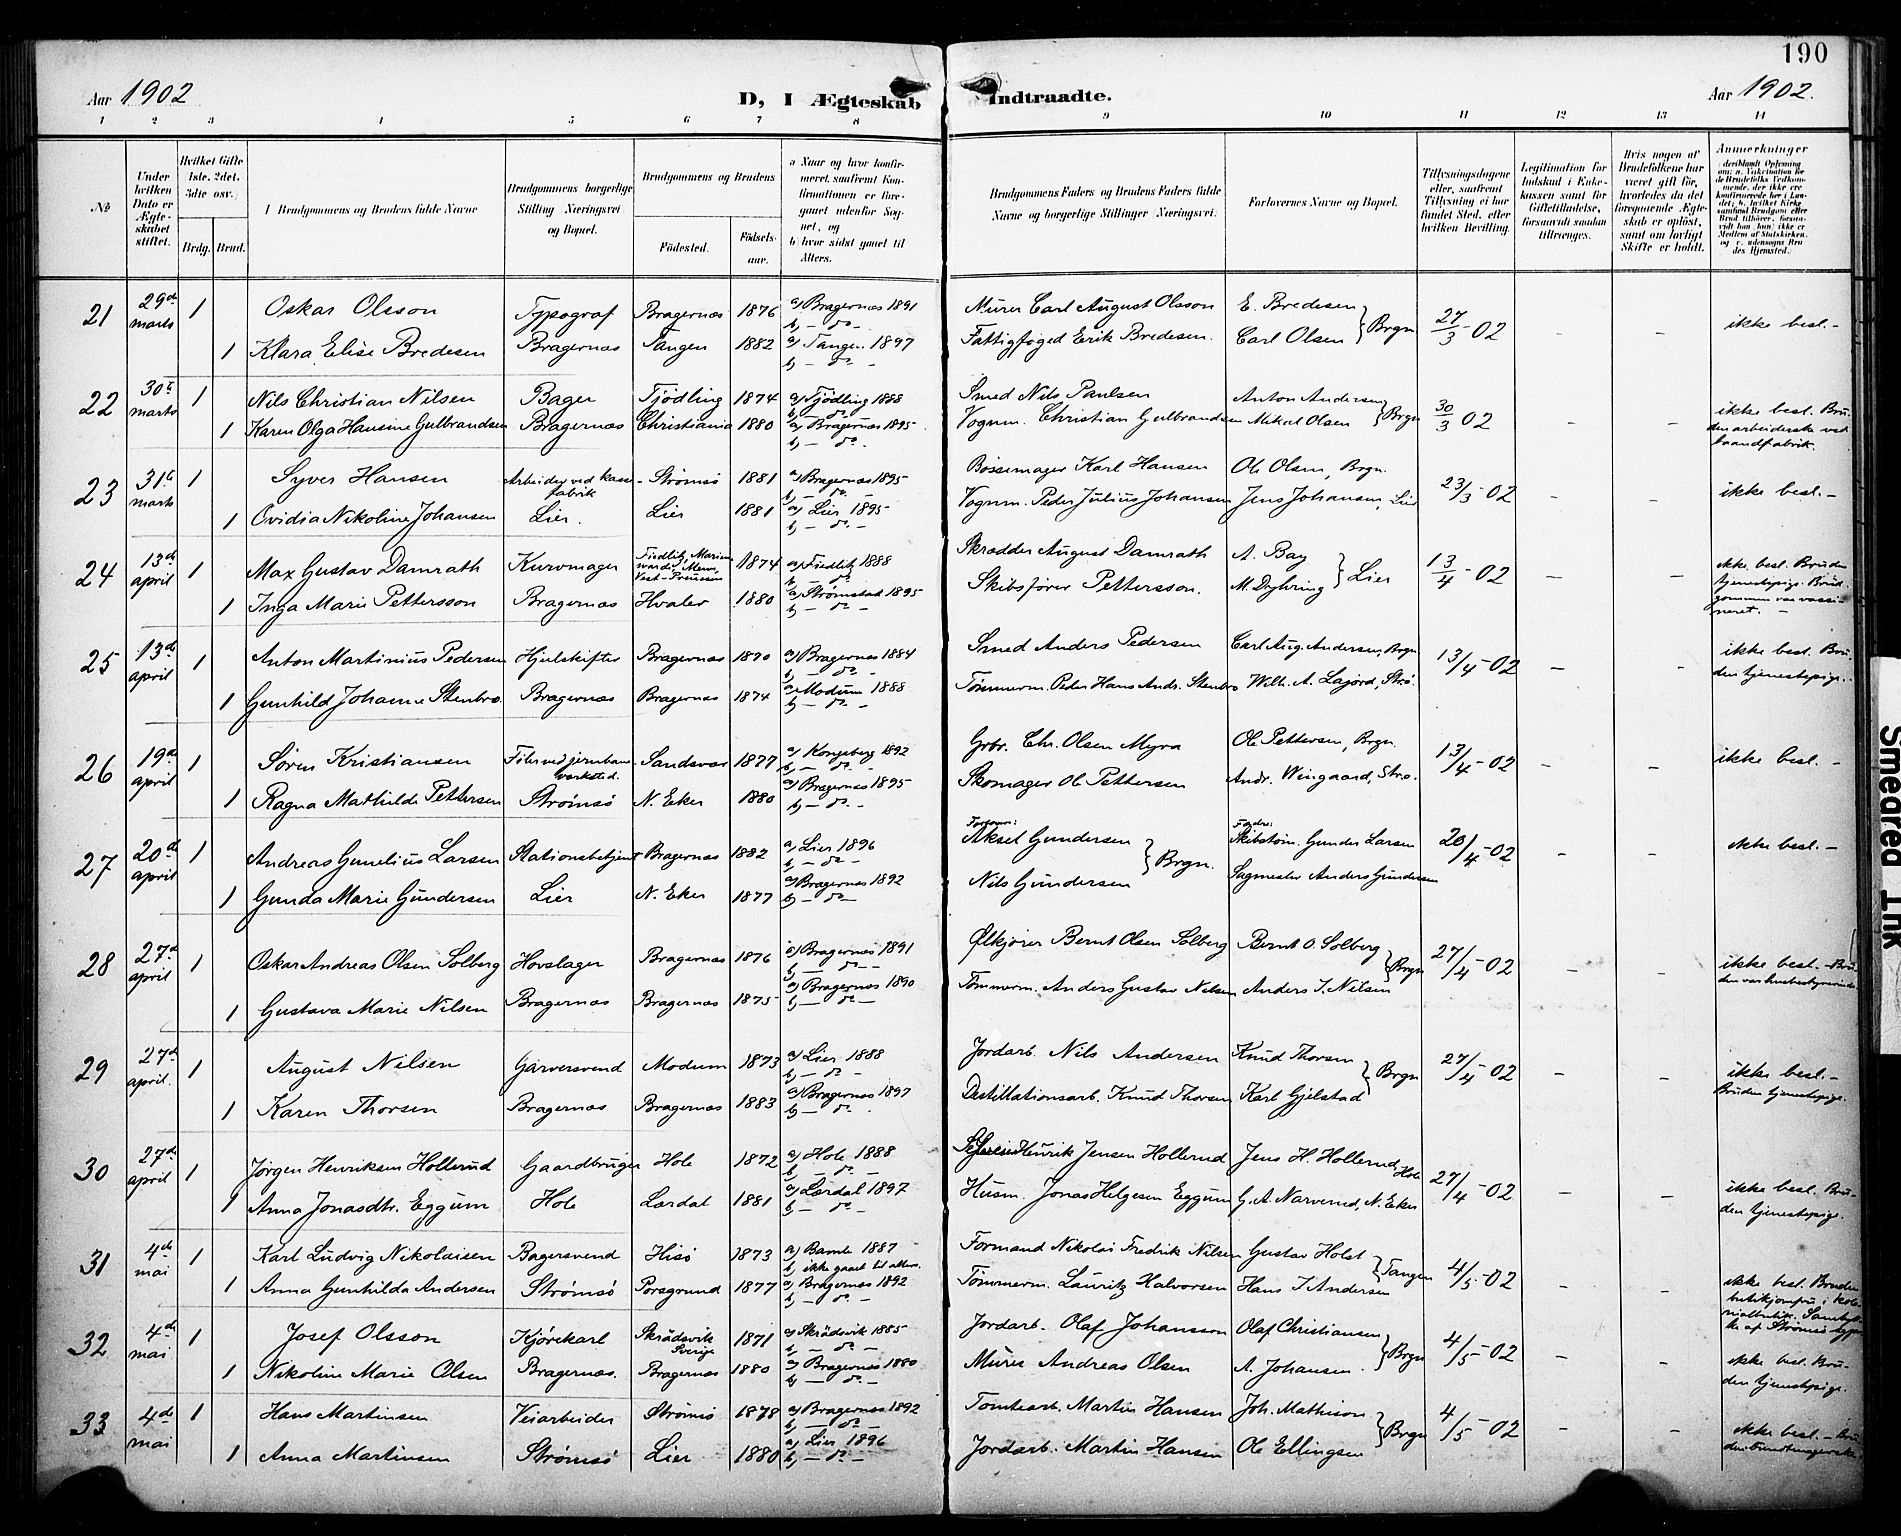 190
Aar 1902
D, I Ægteskab Indtraadte.
Aar 1902.
1 2 3 4 5 6 7 8 9 10 11 12 13 14
№
Under hvilken Dato er Ægteskabet stiftet.
Hvilket Gifte 1ste. 2det. 3die osv.
Brdg. Brud.
1 Brudgommens og Brudens fulde Navne
Brudgommens borgerlige Stilling Næringsvei og Bopæl.
Brudgommens og Brudens
Fødested.
Fødselsaar.
a Naar og hvor konfirmeret, saafremt Konfirmationen er foregaaet udenfor Sognet, og
b hvor sidst gaaet til Alters.
Brudgommens Faders og Brudens Faders fulde Navne og borgerlige Stillinger Næringsvei.
Forlovernes Navne og Bopæl.
Tillysningsdagene eller, saafremt Tillysning ei har fundet Sted, efter hvilken Bevilling.
Legitimation for Indskud i Enkekassen samt for Giftetilladelse, forsaavidt saadan tiltrænges.
Hvis nogen af Brudefolkene har været gift før, hvorledes da det foregaaende Ægteskab er opløst, samt om lovligt Skifte er holdt.
Anmerkninger
21 29de marts 1 Oskar Olsson Typograf Bragernæs 1876 a) Bragernæs 1891 b) — do — Murer Carl August Olsson E. Bredesen } Brgn 27/3-02 - - ikke besl. -
1 Klara Elise Bredesen Bragernæs Tangen 1882 a) Tangen 1897 b) — do — Fattigfoged Erik Bredesen. Carl Olsen
22 30te marts 1 Nils Christian Nilsen Bager Tjödling 1874 a) Tjödling 1888 b) — do — Smed Nils Paulsen Anton Andersen } Brgn 30/3 02 - - ikke besl. Bruden arbeiderske ved
1 Karen Olga Hansine Gulbrandsen Bragernæs Christiania 1880 a) Bragernæs 1895 b) — do — Vognm. Christian Gulbrandsen Mikael Olsen
23 31te marts 1 Syver Hansen Arbeider ved kassefabrik Strømsø 1881 a) Bragernæs 1895 b) — do — Bössemager Karl Hansen Ole Olsen, Brgn. 23/3-02 - - ikke besl. -
1 Ovidia Nikoline Johansen Lier. Lier 1881 a) Lier 1895 b) — do — Vognm. Peder Julius Johansen Jens Johansen, Lier
24 13de april 1 Max Gustav Damrath Kurvmager Fiedlitz, Vest-Preussen 1874 a) Fiedlitz 1888 b) — do — Skrædder August Damrath A. Bay } Lier 13/4-02 - - ikke besl. Bruden tjenestepige. Brudgommen var vaccineret. -
1 Inga Marie Pettersson Bragernæs Hvaler 1880 a) Strømstad 1895 b) — do — Skibsfører Pettersson. M. Dyhring
25 13de april 1 Anton Martinius Pedersen Hjulskifter Bragernæs 1870 a) Bragernæs 1884 b) — do — Smed Anders Pedersen Carl Aug. Andersen, Brgn 13/4-02 - - ikke besl. Bruden tjenestepige.
1 Gunhild Johanne Stenbro Bragernæs Bragernæs 1874 a) Modum 1888 b) — do — Tømmerm. Peder Hans Andr. Stenbro Wilh. A. Lajord, Strø.
26 19de april 1 Søren Kristiansen Filer ved jernbaneverksted. Sandsvær 1877 a) Kongsberg 1892 b) — do — Grbr. Chr. Olsen Myra Ole Pettersen, Brgn. 13/4-02 - - ikke besl. -
1 Ragna Mathilde Pettersen Strømsø N. Eker 1880 a) Bragernæs 1895 b) — do — Skomager Ole Pettersen Andr. Wingaard, Strø.
27 20de april 1 Andreas Gunelius Larsen Stationsbetjent Bragernæs 1882 a) Lier 1896 b) — do — Forlovere: Aksel Gundersen } Brgn. Fædre: Skibstøm. Gunder Larsen 20/4-02 - - ikke besl. -
1 Gunda Marie Gundersen Lier N. Eker 1877 a) Bragernæs 1892 b) — do — Nils Gundersen Sagmester Anders Gundersen
28 27de april 1 Oskar Andreas Olsen Solberg Hovslager Bragernæs 1876 a) Bragernæs 1891 b) — do — Ølkjører Bernt Olsen Solberg Bernt O. Solberg } Brgn 27/4-02 - - ikke besl. - Bruden var husbestyrerinde
1 Gustava Marie Nilsen Bragernæs Bragernæs 1875 a) Bragernæs 1890 b) — do — Tømmerm. Anders Gustav Nilsen Anders J. Nilsen
29 27de april. 1 August Nilsen Garversvend Modum 1873 a) Lier 1888 b) — do — Jordarb. Nils Andersen Knud Thorsen } Brgn 27/4-02 - - ikke besl. - Bruden tjenestepige.
1 Karen Thorsen Bragernæs Bragernæs 1883 a) Bragernæs 1897 b) — do — Destillationsarb. Knud Thorsen Karl Gjelstad
30 27de april 1 Jørgen Henriksen Hollerud Gaardbruger Hole 1872 a) Hole 1888 b) — do — Henrik Jensen Hollerud Jens H. Hollerud Hole 27/4-02 - - ikke besl. Bruden tjenestepige.
1 Anna Jonasdtr. Eggum Hole Lærdal 1881 a) Lærdal 1897 b) — do — Husm. Jonas Helgesen Eggum G. A. Narverud, N. Eker
31 4de mai 1 Karl Ludvig Nikolaisen Bagersvend Hisø 1873 a) Bamle 1887 b) ikke gaaet til alters. Formand Nikolai Fredrik Nilsen Gustav Holst } Tangen 4/5-02 - - ikke besl. Bruden
1 Anna Gunhilda Andersen Strømsø Porsgrund 1877 a) Bragernæs 1892 b) — do — Tömmerm. Lauritz Halvorsen Hans J Andersen
32 4de mai 1 Josef Olsson Kjørekarl Skrädsvik Sverige 1871 a) Skrädsvik 1885 b) — do — Jordarb. Olaf Johansson Olaf Christiansen } Brgn 4/5-02 - - ikke besl. Bruden tjenestepige.
1 Nikoline Marie Olsen Bragernæs. Bragernæs 1880 a) Bragernæs 1880 b) — do — Murer Andreas Olsen A. Johansen.
33 4de mai 1 Hans Martinsen Veiarbeider Strømsø 1878 a) Bragernæs 1892 b) — do — Tomtearb. Martin Hansen Joh. Mathison } Brgn 4/5-02 - - ikke besl. - Bruden
1 Anna Martinsen Strømsø Lier 1880 a) Lier 1896 b) — do — Jordarb. Martin Hansen Ole Ellingsen
Smeared Ink